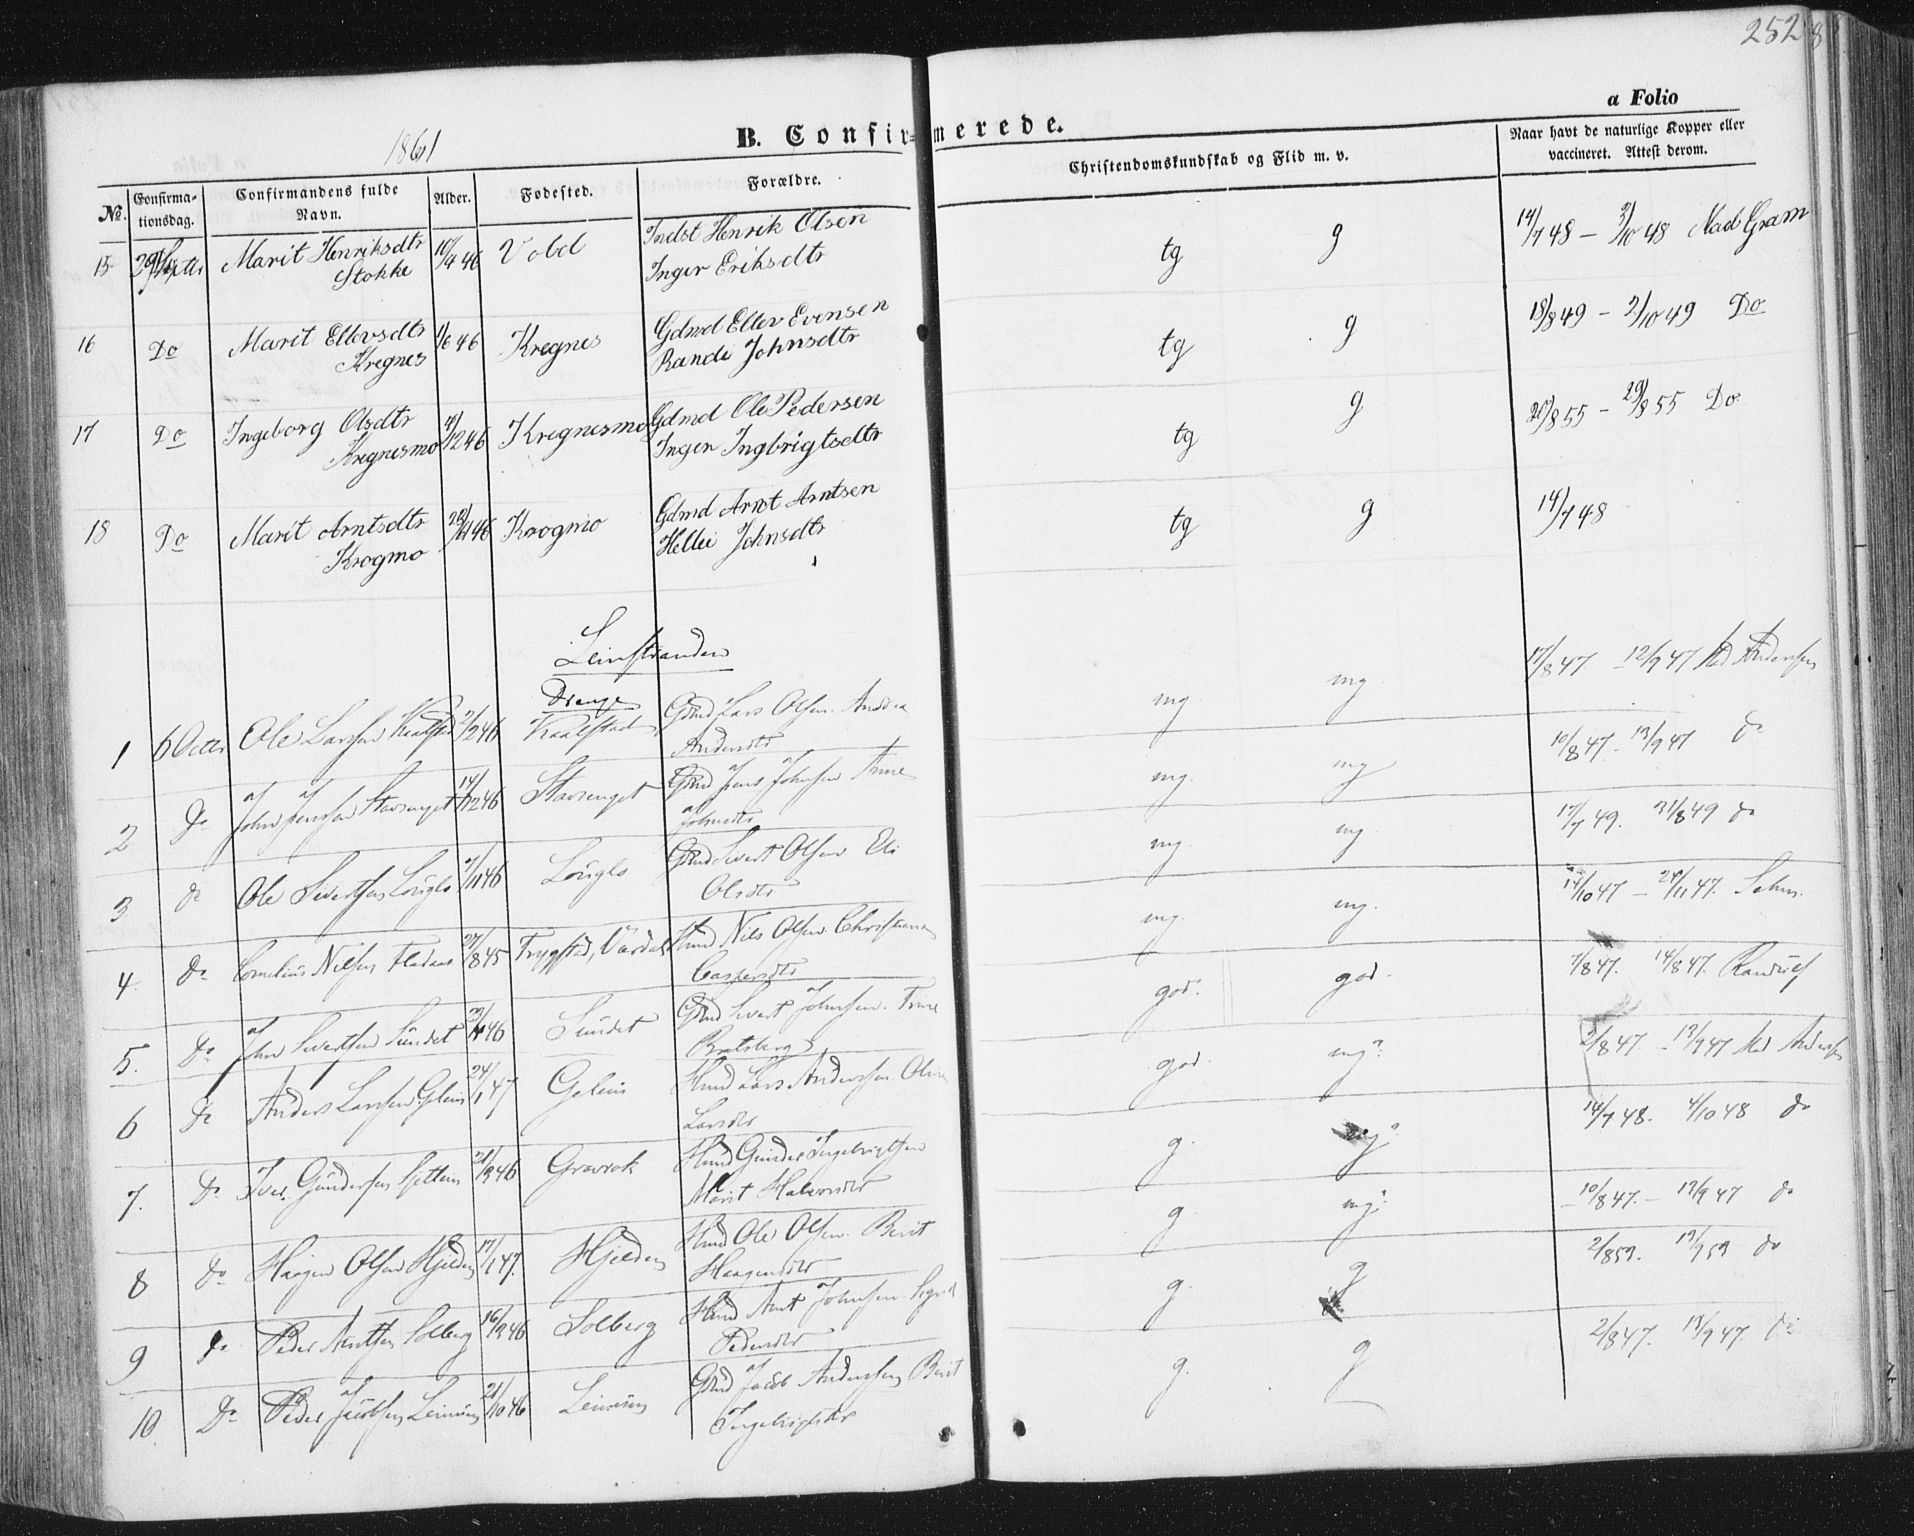 252
a Folio
1861
B. Confirmerede.
No. Confirmationsdag. Confirmandens fulde Navn. Alder. Fødested. Forældre. Christendomskundskab og Flid m. v. Naar havt de naturlige Kopper eller vaccineret. Attest derom.
15 29 Septbr Marit Henriksdtr 16/4 46 Vold Indst Henrik Olsen tg g 14/7 48 – 3/10 48 Mad Gram
Stokke Inger Eriksdtr
16 Do Marit Ellevsdtr 1/6 46 Kregnes Gdmd Ellev Evensen tg g 18/8 49 – 2/10 49 Do
Kregnes Randi Johnsdtr
17 Do Ingeborg Olsdtr /12 46 Kregnesmo Gdmd Ole Pedersen tg g 20/8 55 – 29/8 55 Do
Kregnesmo Inger Ingbrigtsdtr
18 Do Marit Arntsdtr 46 Krogmo Gdmd Arnt Arntsen tg g 14/7 48
Krogmo Johnsdtr
Leinstranden
Drenge
1 6 Octbr Ole Larssen 2/2 46 Gdmd Lars Olsen. mg mg 17/8 47 – 12/9 47 Mad Andersen
Andersdtr
2 do John Jenssen Stavsenget 14/12 46 Stavsenget Gdmd Jens Johnsen Anne mg. mg 10/8 47 – 13/9 47 do
Johnsdtr
3 do Ole Sivertsen /11 46 Gdmd Sivert Olsen Eli mg. mg 17/7 49. 31/8 49 do
Olsdtr
4. do Cornelius Nilsen 27/8 45 Trygstad, Værdal Hmd Nils Olsen. Christiana mg. mg. 14/10 47 – 24/11 47.
Caspersdtr
5. Do John Sivertsen Sundet 46 Sundet Gmd Sivert Johnsen. Trine god. god. 7/8 47. 14/8 47.
Bratsberg
6 do Anders Larssen 24/1 47 Hmd Lars Anderssen. god mg? 2/8 47. – 13/9 47 Mad Andersen
Larsdtr
7. do Iver Gundersen 21/9 46 Gravrok Hmd Gunder Ingebrigtsen g. mg? 14/7 48. 4/10 48 do
Marit Halvorsdtr
8 do Haagen Olsen Hjelden 17/1 47. Hjelden Hmd Ole Olsen. Berit g. mg? 10/8 47. – 13/9 47 do
Haagensdtr
9 do Peder Arntsen Solberg 16/9 46 Solberg Hmd Arnt Johnsen. g. g 2/8 53. 13/9 53 do
Pedersdtr
10 Do Peder Jacobsen 21/10 46 Gmd Jacob Anderssen Berit g. g 2/8 47. 13/9 47. do
Ingebrigtsdtr